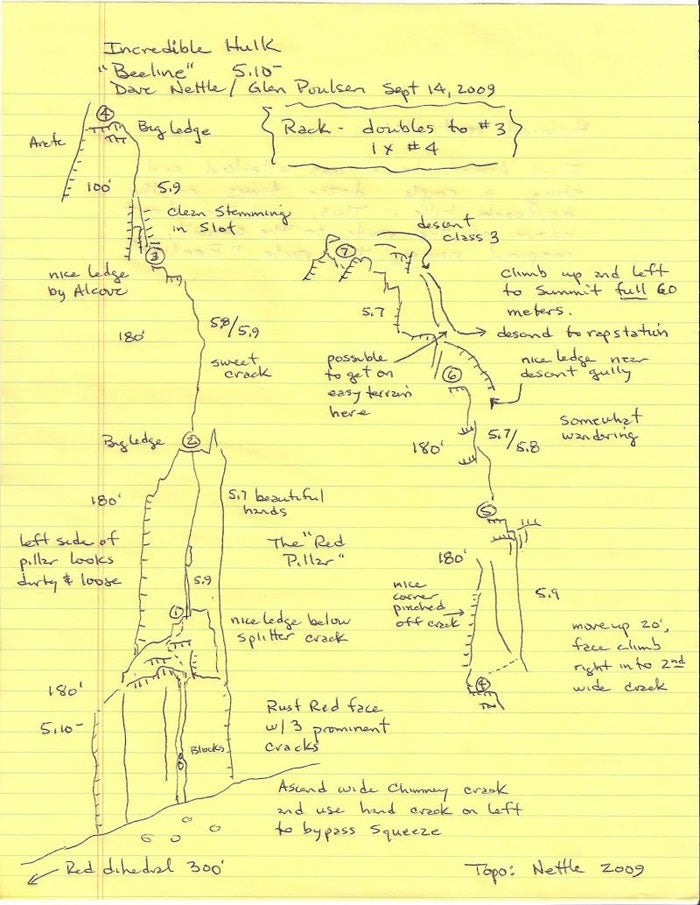 Incredible Hulk
"Beeline" 5.10-
Dave Nettle / Glen Poulsen Sept 14, 2009
Rack - doubles to #3
1 x #4
4
Big ledge
Arete
100'
5.9
clean stemming
in slot
3
nice ledge
by Alcove
180'
5.8/5.9
sweet
crack
Big ledge
2
180'
5.7 beautiful
hands
The "Red
Pillar"
left side of
pillar looks
dirty & loose
5.9
1
nice ledge below
splitter crack
180'
5.10-
Rust Red face
w/ 3 prominent
cracks
Blocks
Ascend wide chimney crack
and use hand crack on left
to bypass squeeze
Red dihedral 300'
7
descent
class 3
climb up and left
to summit full 60
meters.
descend to rap station
5.7
possible
to get on
easy terrain
here
nice ledge near
descent gully
6
180'
5.7/5.8
somewhat
wandering
5
180'
nice
corner
pinched
off crack
5.9
move up 20',
face climb
right in to 2nd
wide crack
4
Topo: Nettle 2009